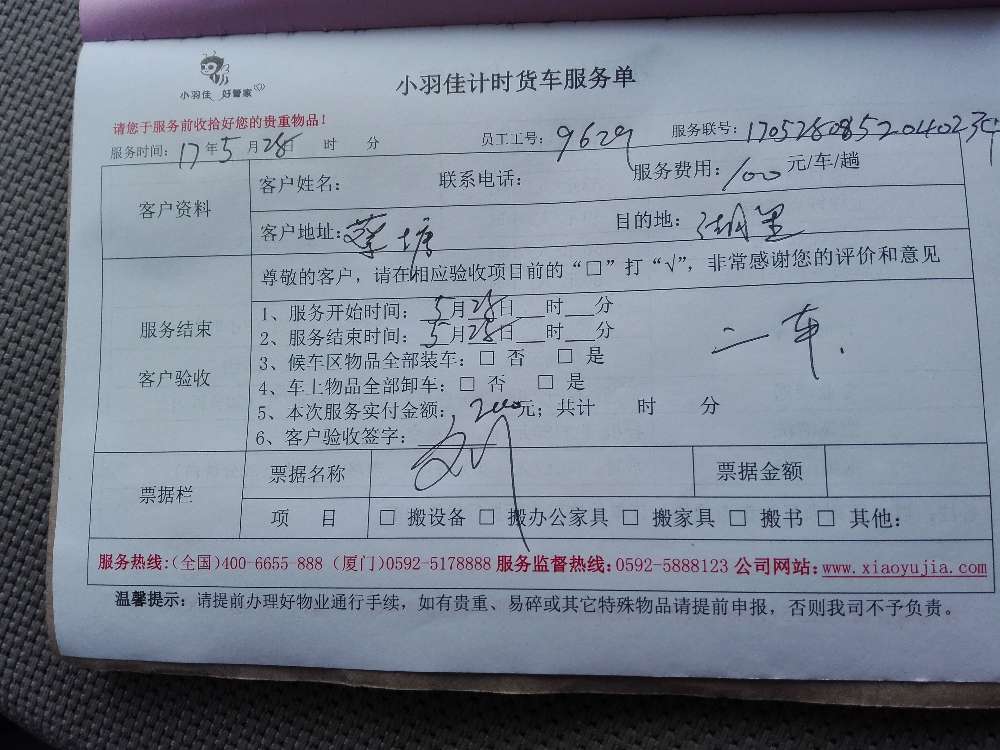 小羽佳 好管家
小羽佳计时货车服务单
请您于服务前收拾好您的贵重物品！
服务时间：17年5月28日 时 分 员工工号：9629 服务联号：
客户资料
客户姓名： 联系电话： 服务费用：100元/车/趟
客户地址：蔡塘 目的地：湖里
服务结束
客户验收
尊敬的客户，请在相应验收项目前的“□”打“√”，非常感谢您的评价和意见
1、服务开始时间：5月28日__时__分
2、服务结束时间：5月28日__时__分
二车.
3、候车区物品全部装车：□ 否 □ 是
4、车上物品全部卸车：□ 否 □ 是
5、本次服务实付金额：200元；共计 时 分
6、客户验收签字：
票据栏
票据名称 票据金额
项 目 □ 搬设备 □ 搬办公家具 □ 搬家具 □ 搬书 □ 其他：
服务热线：(全国)400-6655-888 (厦门)0592-5178888 服务监督热线：0592-5888123 公司网站：www.xiaoyujia.com
温馨提示：请提前办理好物业通行手续，如有贵重、易碎或其它特殊物品请提前申报，否则我司不予负责。